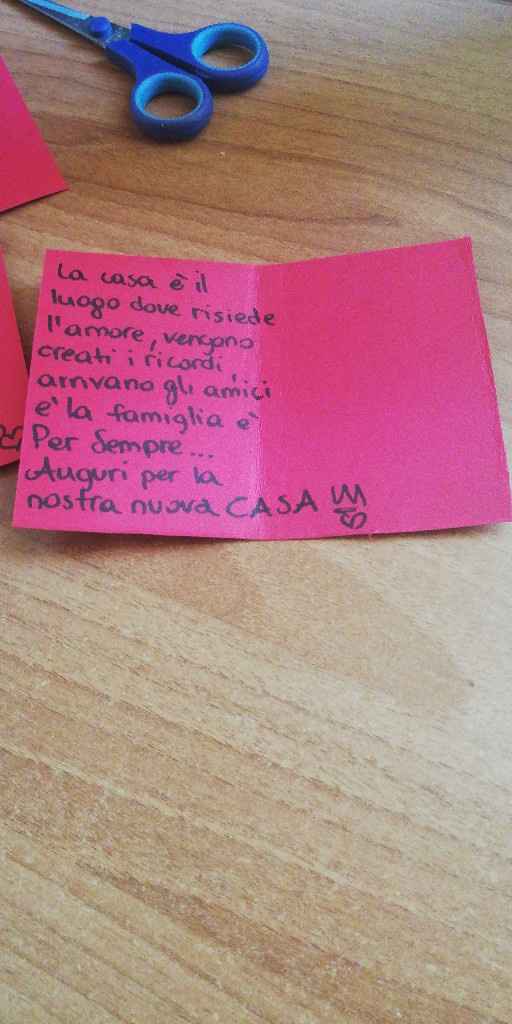 La casa è il
luogo dove risiede
l'amore, vengono
creati i ricordi
arrivano gli amici
e' la famiglia è
Per Sempre...
Auguri per la
nostra nuova CASA !!!